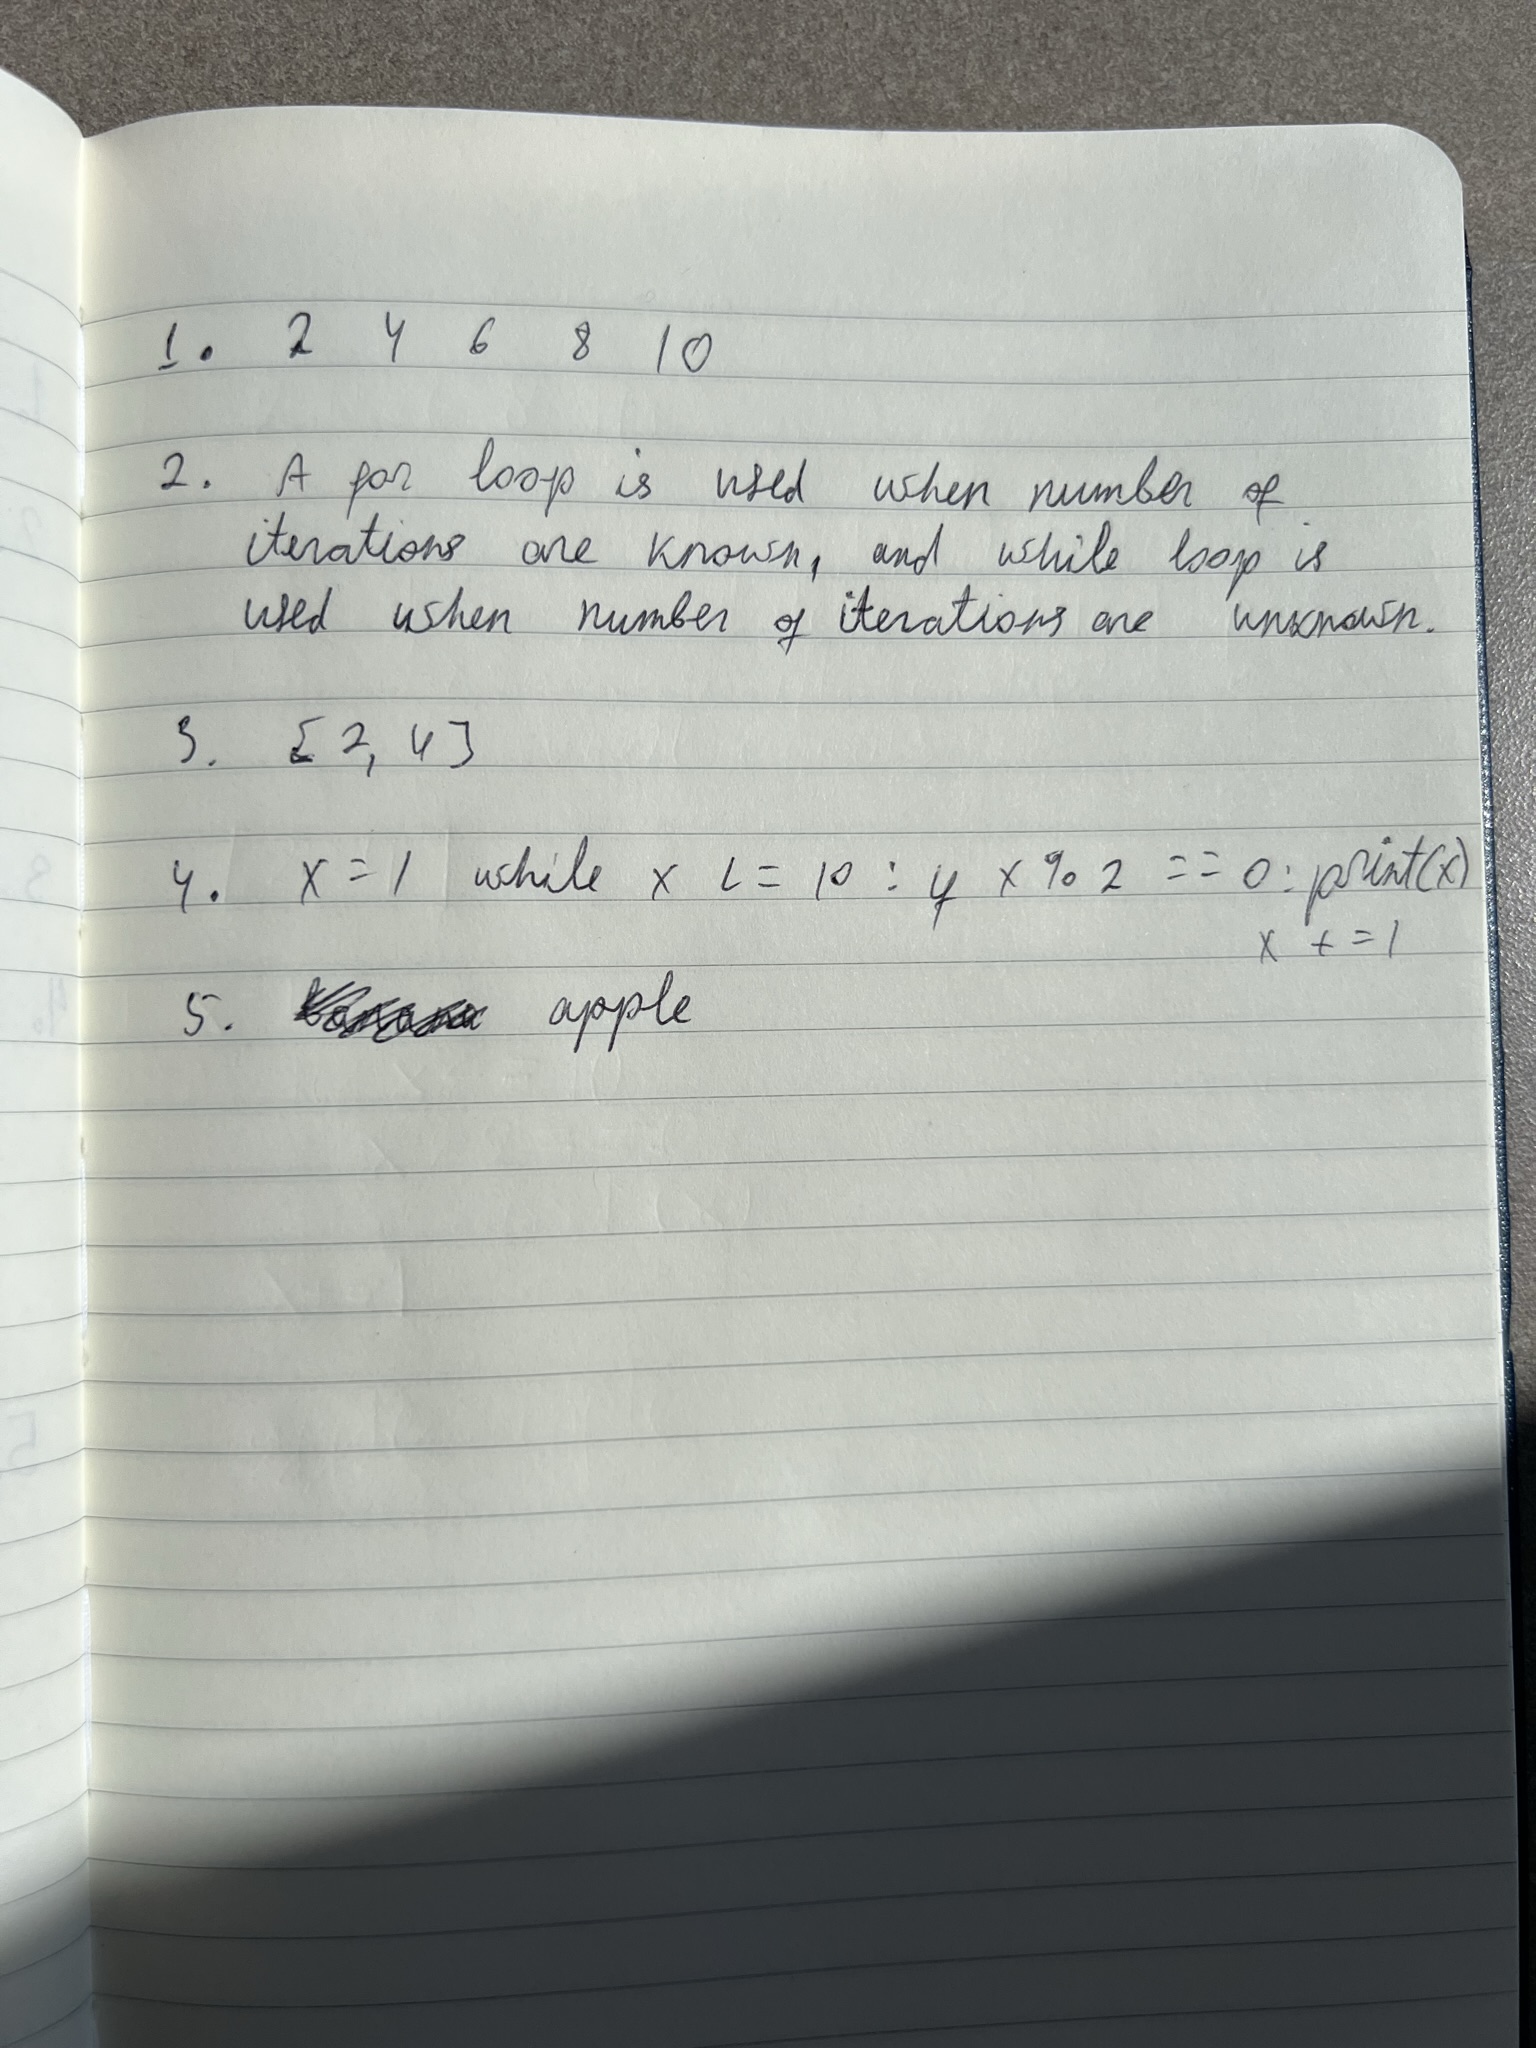 1. 2 4 6 8 10
2. A for loop is used when number of
iterations are known, and while loop is
used when number of iterations are unknown.
3. [2, 4]
4. x = 1 while x <= 10 : if x % 2 == 0 : print(x)
x += 1
5. apple